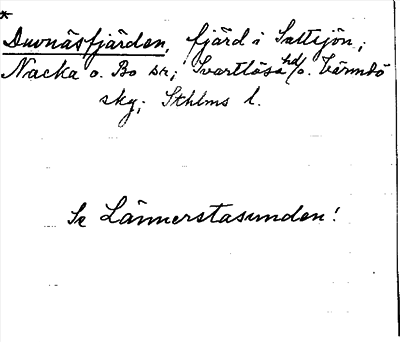 *
Duvnäsfjärden, fjärd i Saltsjön;
Nacka o. Bo sn; Svartlösa hd/o. Värmdö
skg; Sthlms l.
Se Lännerstasunden!